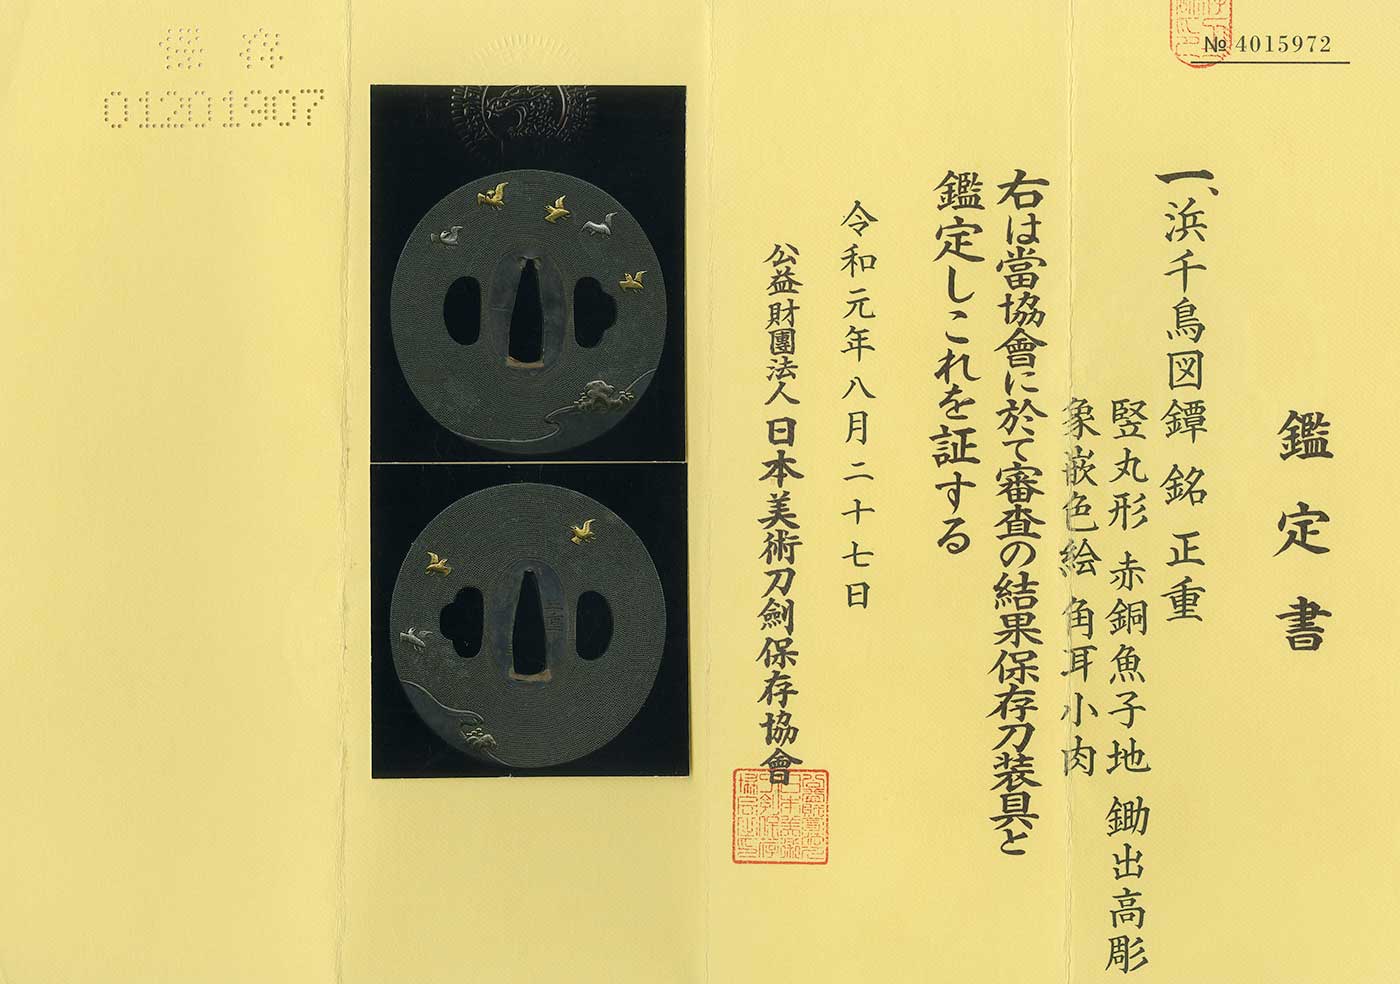 № 4015972
鑑定書
一、浜千鳥図鐔 銘 正重
竪丸形 赤銅魚子地 鋤出高彫
象嵌色絵 角耳小肉
右は當協會に於て審査の結果保存刀装具と
鑑定しこれを証する
令和元年八月二十七日
公益財團法人 日本美術刀劍保存協會
保存
01201907